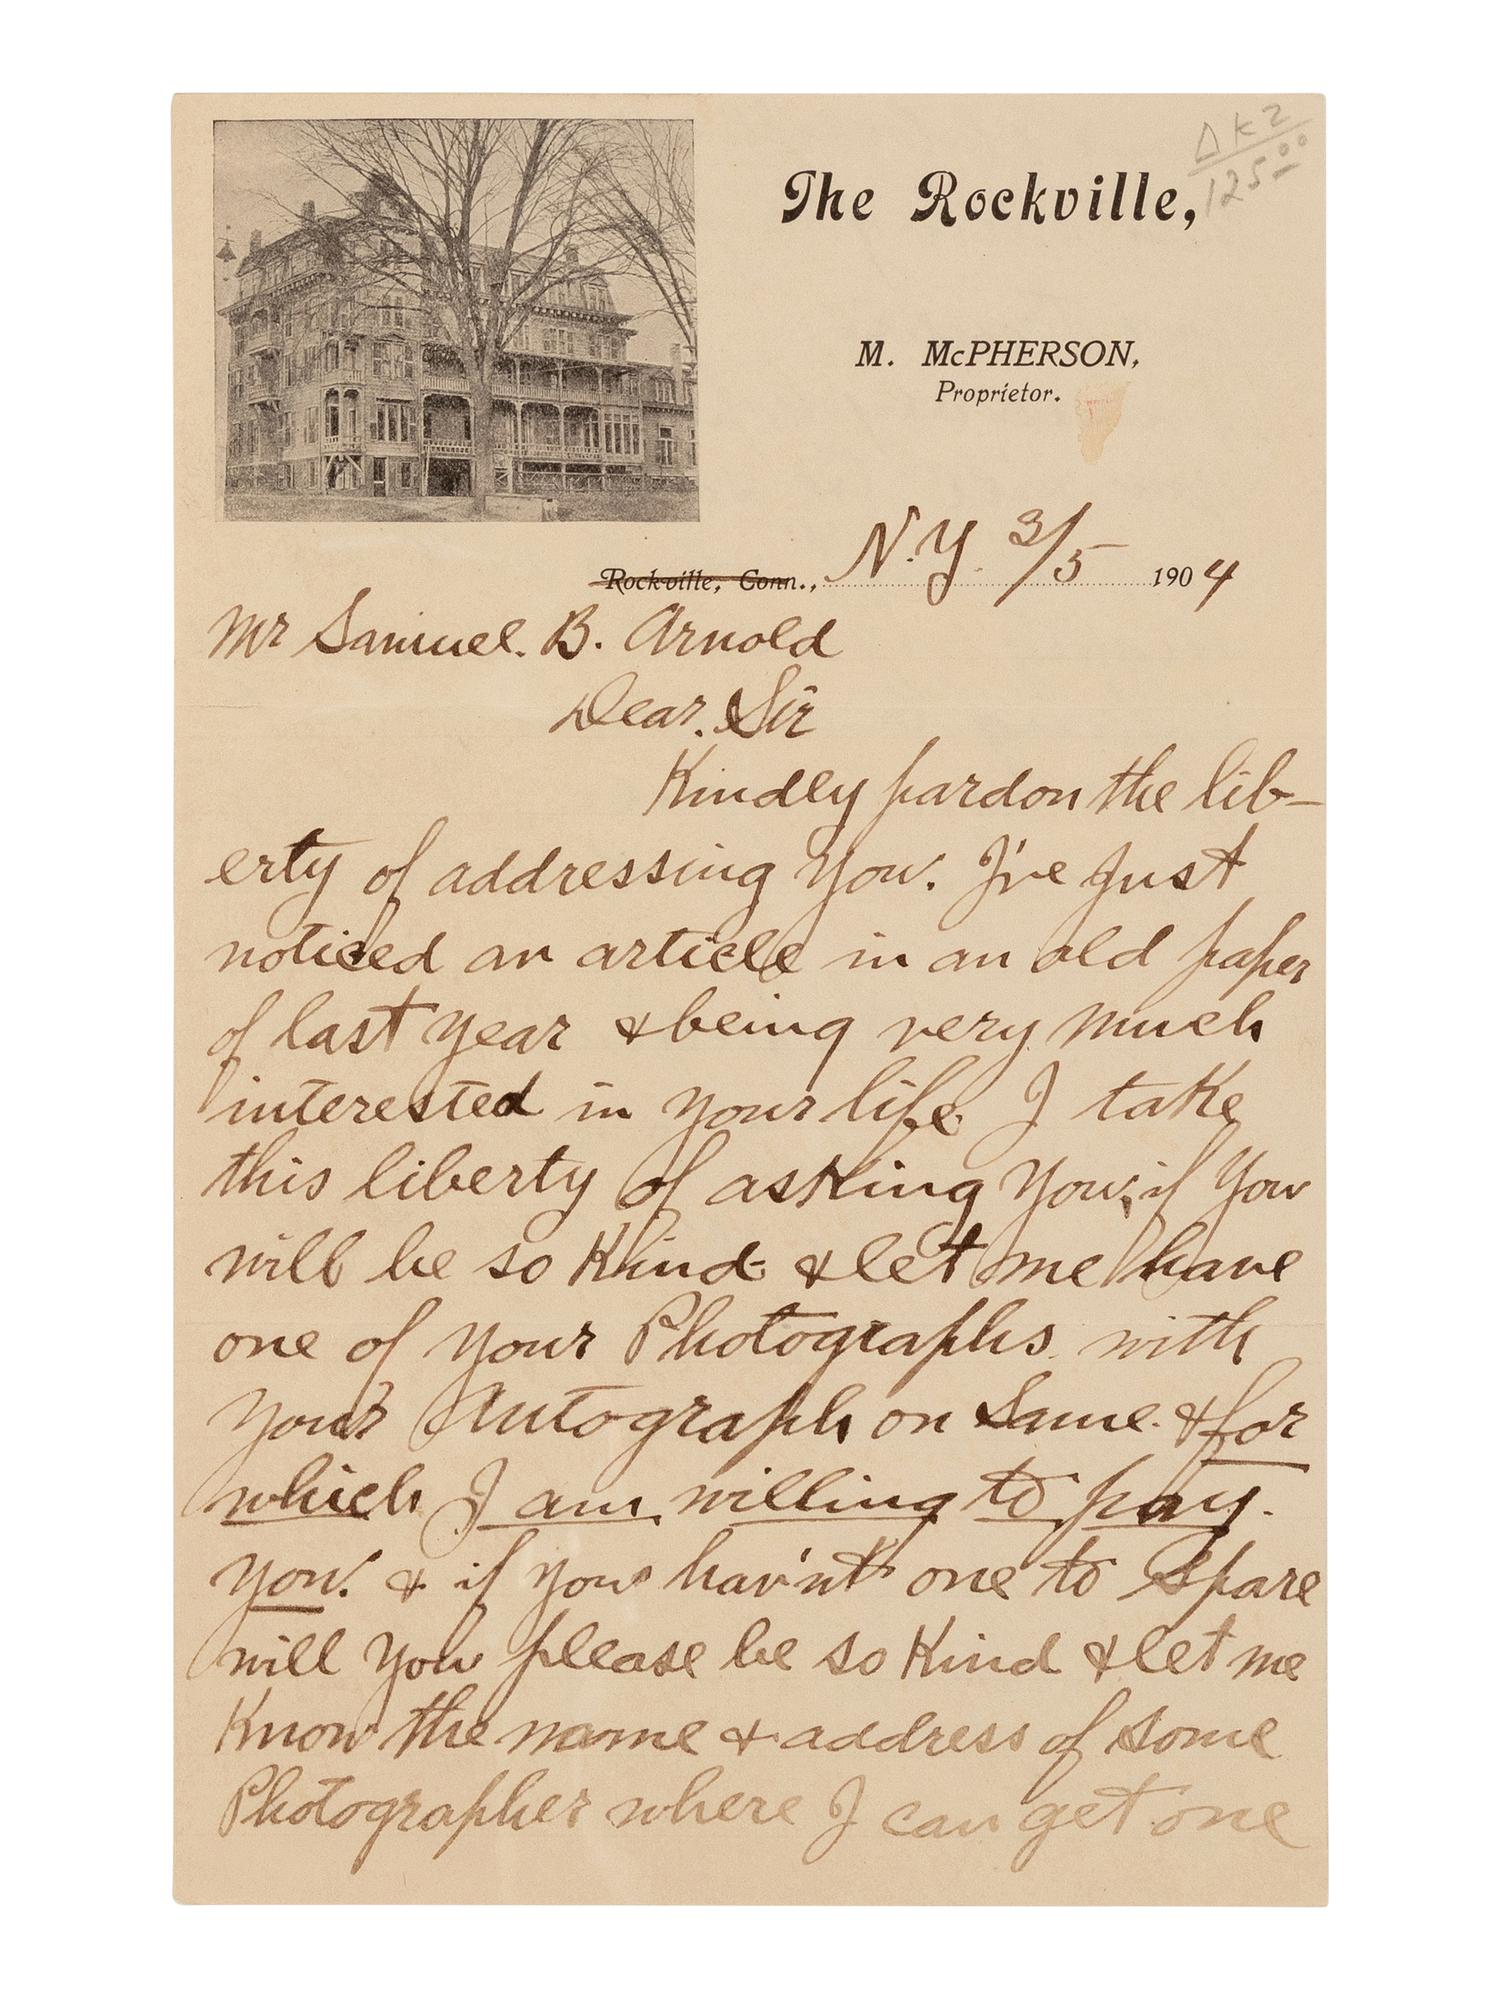 Δ K 2
125.00
The Rockville,
M. McPHERSON,
Proprietor.
Rockville, Conn., N.Y. 3/5 1904
Mr Samuel. B. Arnold
Dear. Sir
Kindly pardon the lib-
erty of addressing you. I've just
noticed an article in an old paper
of last year & being very much
interested in your life I take
this liberty of asking you, if you
will be so Kind & let me have
one of your Photographs with
your Autograph on Same. & for
which I am willing to pay.
you. & if you hav'nt one to Spare
will you please be so Kind & let me
Know the name & address of some
Photographer where I can get one